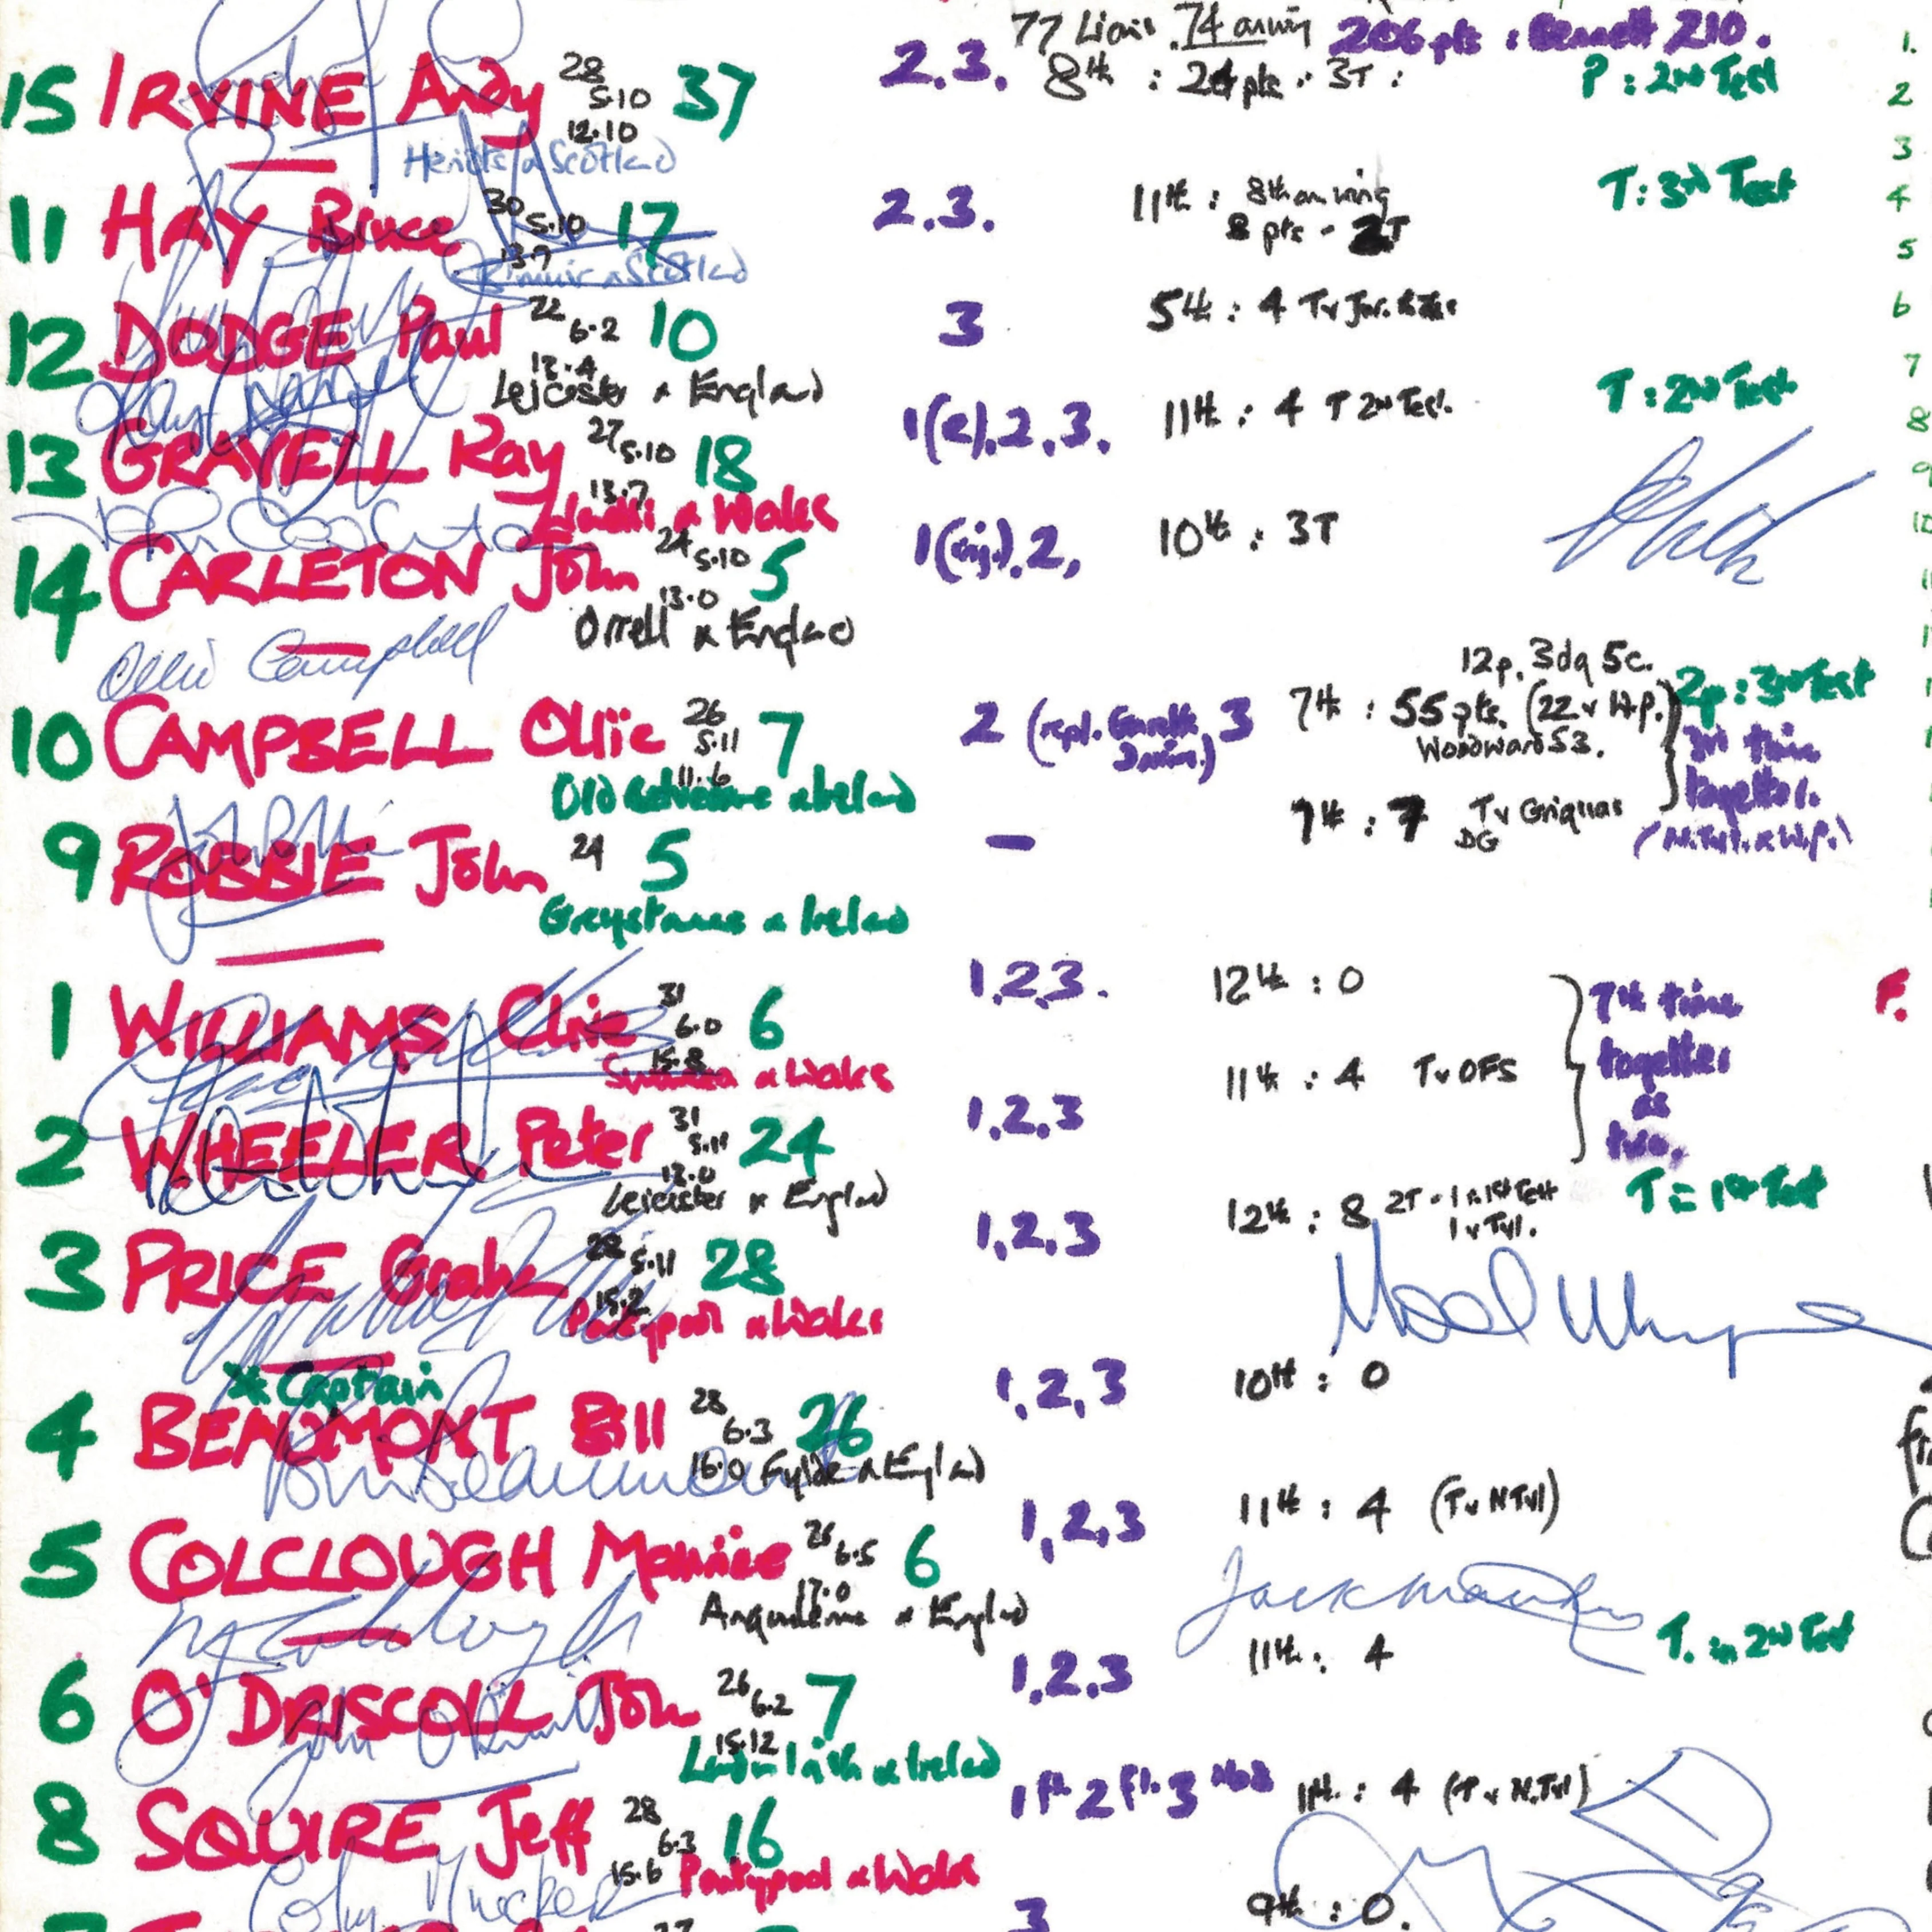 77 Lions. 74 on wing 206 pts : Bennett 210.
15 IRVINE Andy 28 5.10 12.10 37 2.3. 8th : 24 pts . 3T : P : 2nd Test
Heriots & Scotland
11 HAY Bruce 30 5.10 13.7 17 2.3. 11th : 8th on wing 8 pts - 2T T : 3rd Test
& Scotland
12 DODGE Paul 22 6.2 13.4 10 3 5th : 4 T v
Leicester & England
13 GRAVELL Ray 27 5.10 13.7 18 1(r).2.3. 11th : 4 T 2nd Test. T : 2nd Test
Llanelli & Wales
14 CARLETON John 24 5.10 13.0 5 1(inj.).2, 10th : 3T
Orrell & England
Ollie Campbell
12p. 3dg 5c.
10 CAMPBELL Ollie 26 5.11 11.6 7 2 (repl. Gareth Davies.) 3 7th : 55 pts. (22 v W.P.) 2p : 3rd Test
Woodward 53.
Old Belvedere & Ireland
3rd time together.
9 ROBBIE John 24 5 – 7th : 7 T v Griquas DG
Greystones & Ireland
1 WILLIAMS Clive 31 6.0 15.8 6 1.2.3. 12th : 0
Swansea & Wales
7th time together as two.
2 WHEELER Peter 31 5.11 13.0 24 1.2.3 11th : 4 T v OFS
Leicester & England
3 PRICE Graham 28 5.11 15.2 28 1,2,3 12th : 8 2T - 1 in 1st Test 1 v Tvl. T = 1st Test
Pontypool & Wales
* Captain
4 BEAUMONT Bill 28 6.3 16.0 26 1,2,3 10th : 0
Fylde & England
Bill Beaumont
5 COLCLOUGH Maurice 26 6.5 17.0 6 1,2,3 11th : 4 (T v N Tvl)
Angouleme & England
6 O'DRISCOLL John 26 6.2 15.12 7 1.2.3 11th : 4 T. in 2nd Test
London Irish & Ireland
John O'Driscoll
8 SQUIRE Jeff 28 6.3 15.6 16 1 fl. 2 fl. 3 No8 11th : 4 (T v N.Tvl)
Pontypool & Wales
3 9th : 0.